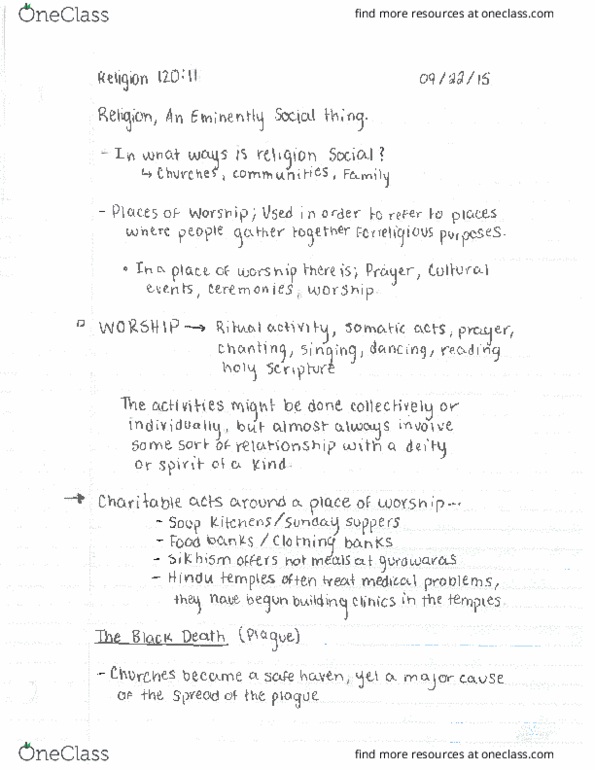 OneClass
find more resources at oneclass.com
Religion 120:11
09/22/15
Religion, An Eminently Social thing.
- In what ways is religion Social?
↳ Churches, communities, Family
- Places of Worship; Used in order to refer to places
where people gather together for religious purposes.
• In a place of worship there is; Prayer, Cultural
events, ceremonies, worship.
□ WORSHIP → Ritual activity, somatic acts, prayer,
chanting, singing, dancing, reading
holy scripture
The activities might be done collectively or
individually, but almost always involve
some sort of relationship with a deity
or spirit of a kind.
→ Charitable acts around a place of worship...
- Soup Kitchens/Sunday suppers
- Food banks / Clothing banks
- Sikhism offers hot meals at gurdwaras
- Hindu temples often treat medical problems,
they have begun building clinics in the temples.
The Black Death (Plague)
- Churches became a safe haven, yet a major cause
of the spread of the plague
OneClass
find more resources at oneclass.com